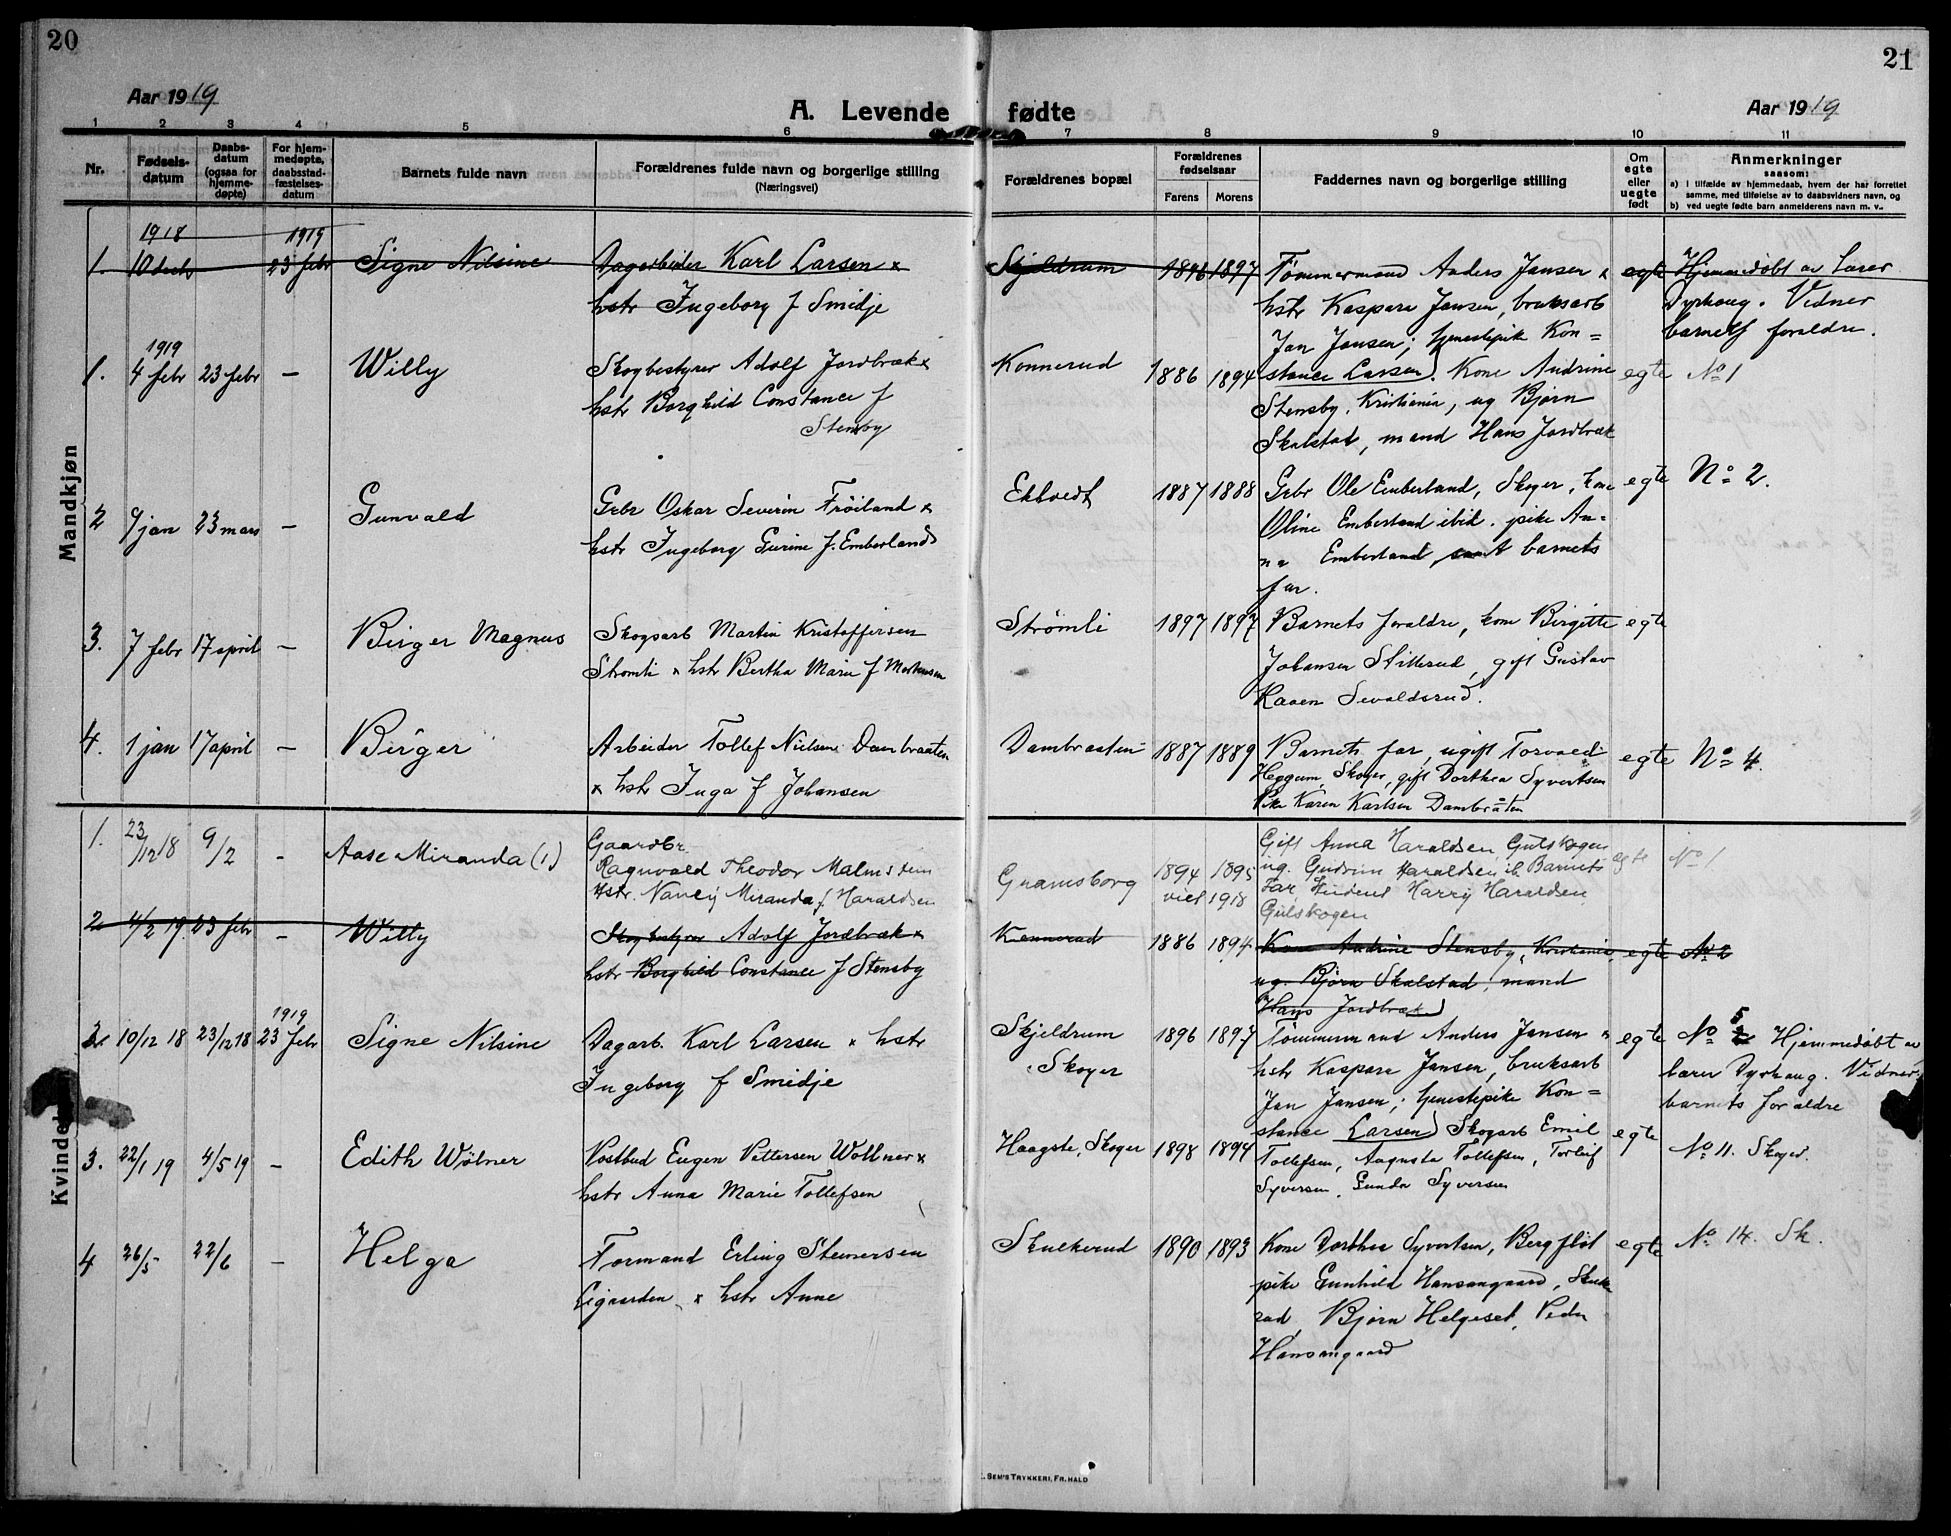 20
21
Aar 1919
A. Levende fødte
Aar 1919
1 2 3 4 5 6 7 8 9 10 11
Nr.
Fødsels-
datum
Daabs-
datum
(ogsaa for
hjemme-
døpte)
For hjem-
medøpte,
daabsstad-
fæstelses-
datum
Barnets fulde navn
Forældrenes fulde navn og borgerlige stilling
(Næringsvei)
Forældrenes bopæl
Forældrenes
fødselsaar
Farens Morens
Faddernes navn og borgerlige stilling
Om
egte
eller
uegte
født
Anmerkninger
saasom:
a) i tilfælde av hjemmedaab, hvem der har forrettet
samme, med tilføielse av to daabsvidners navn, og
b) ved uegte fødte barn anmelderens navn m. v.
Mandkjøn
1918 1919
1. 10 decb 23 febr Signe Nilsine Dagarbeider Karl Larsen x
hstr Ingeborg f Smidje
Skjeldrum 1896 1897 Tømmermand Anders Jansen x
hstr Kaspara Jansen, bruksarb
Jan Jansen; tjenestepike Kon=
stance Larsen
egte Hjemmedøbt av Lærer
Dyrhaug. Vidner
barnets foraldre.
1919
1. 4 febr 23 febr — Willy Skogbestyrer Adolf Jordbræk x
hstr Borghild Constance f
Stensby
Konnerud 1886 1894 Kone Andrine
Stensby, Kristiania, ug Bjørn
Skalstad, mand Hans Jordbræk
egte No 1
2 9 jan 23 mars — Gunvald Grbr Oskar Severin Frøiland x
hstr Ingeborg Gurine f. Emberland
Ekholdt 1887 1888 Grbr Ole Emberland, Skoger, kone
Oline Emberland ibid. pike An=
na Emberland, samt barnets
far.
egte No 2.
3. 7 febr 17 april — Birger Magnus Skogsarb Martin Kristoffersen
Strømli x hstr Bertha Marie f Mortensen
Strømli 1897 1897 Barnets foraldre, kone Birgitte
Johansen Stillerud, gift Gustav
Kaasen Sevaldsrud.
egte
4. 1 jan 17 april — Birger Arbeider Tollef Nielsen Dambraaten
x hstr Inga f Johansen
Dambraaten 1887 1889 Barnets far, ugift Torvald
Heggum, Skoger, gift Dorthea Syvertsen
Pike Karen Karlsen Dambråten
egte No 4.
Kvindekjøn
1. 23/12 18 9/2 - Aase Miranda (1) Gaardbr.
Ragnvald Theodor Malmstein
Hstr. Nancy Miranda f. Haraldsen
Gramsborg 1894 1895
viet 1918
Gift Anna Haraldsen, Gulskogen
ug. Gudrun Haraldsen ib. Barnets
Far, Student Harry Haraldsen
Gulskogen
egte No 1
2 4/2 19. 23 febr - Willy Skogbestyrer Adolf Jordbræk x
hstr Borghild Constance f Stensby
Konnerud 1886 1894 Kone Andrine Stensby, Kristiania,
ug. Bjørn Skalstad, mand
Hans Jordbræk
egte No 2
1919
2. 10/12 18 23/12 18 23 febr Signe Nilsine Dagarb. Karl Larsen x hstr
Ingeborg f Smidje
Skjeldrum
Skoger
1896 1897 Tømmermand Anders Jansen x
hstr Kaspara Jansen, bruksarb
Jan Jansen; tjenestepike Kon=
stance Larsen
egte No 5 Hjemmedøbt av
lærer Dyrhaug. Vidner:
barnets foraldre
3. 22/1 19 4/5 19 - Edith Wølner Postbud Eugen Pettersen Wollner x
hstr Anna Marie Tollefsen
Haagste, Skoger 1898 1894 Skogsarb Emil
Tollefsen, Augusta Tollefsen, Torleif
Syversen, Gunda Syversen
egte No 11. Skoger.
4 26/5 22/6 - Helga Formand Erling Stenersen
Ligaarden x hstr Anne
Skulkerud 1890 1893 Kone Dorthea Syvertsen, Bergfløt
pike Gunhild Hansangaard, Skulke
rud, Bjørn Helgeset, Peder
Hansangaard
egte No 14. Sk.
SEM'S TRYKKERI, FR.HALD